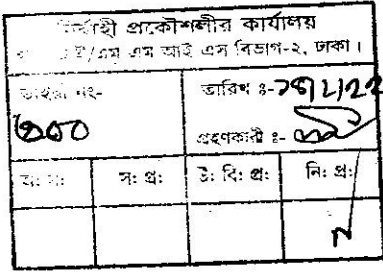 নির্বাহী প্রকৌশলীর কার্যালয়
ই/এম এম আই এস বিভাগ-২, ঢাকা।
ডাইরী নং- তারিখ ঃ-
২০০ গ্রহণকারী ঃ-
সঃ প্রঃ উঃ বিঃ প্রঃ নিঃ প্রঃ